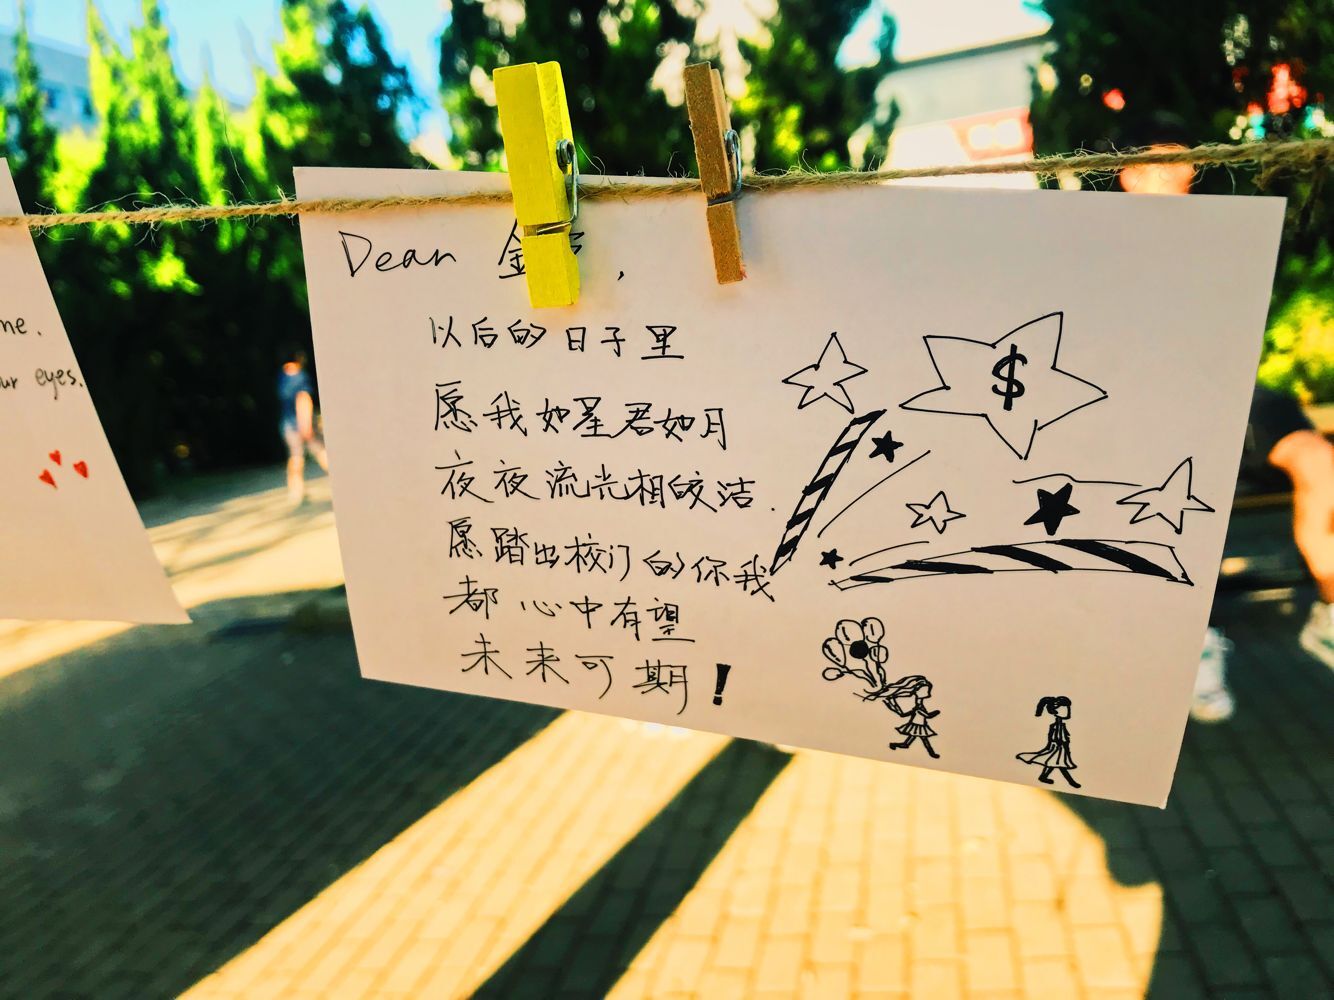 Dear 金 ,
以后的日子里
愿我如星君如月
夜夜流光相皎洁.
愿踏出校门的你我
都心中有望
未来可期!
$
me.
our eyes.